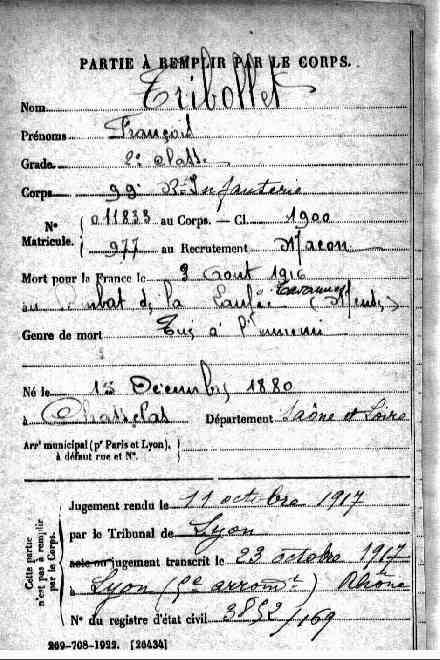 PARTIE À REMPLIR PAR LE CORPS.
Nom Tribollet
Prénoms François
Grade 2e classe
Corps 99e R. Infanterie
N° Matricule. 011833 au Corps. — Cl. 1900
977 au Recrutement Macon
Mort pour la France le 3 Aout 1916
au Combat de la Lauffée
Genre de mort Tué à l'ennemi
Né le 13 Décembre 1880
à Chasselas Département Saône et Loire
Arrt municipal (pr Paris et Lyon), à défaut rue et N°.
Cette partie n'est pas à remplir par le Corps.
Jugement rendu le 11 octobre 1917
par le Tribunal de Lyon
acte ou jugement transcrit le 23 octobre 1917
à Lyon (5e arromt) Rhône
N° du registre d'état civil 3852/169
269-708-1922. [26434]